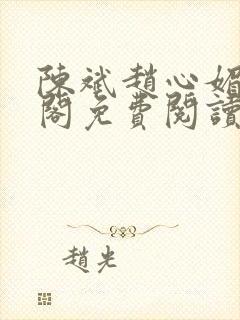 陳斌趙心媚
閣免費閱讀
趙光